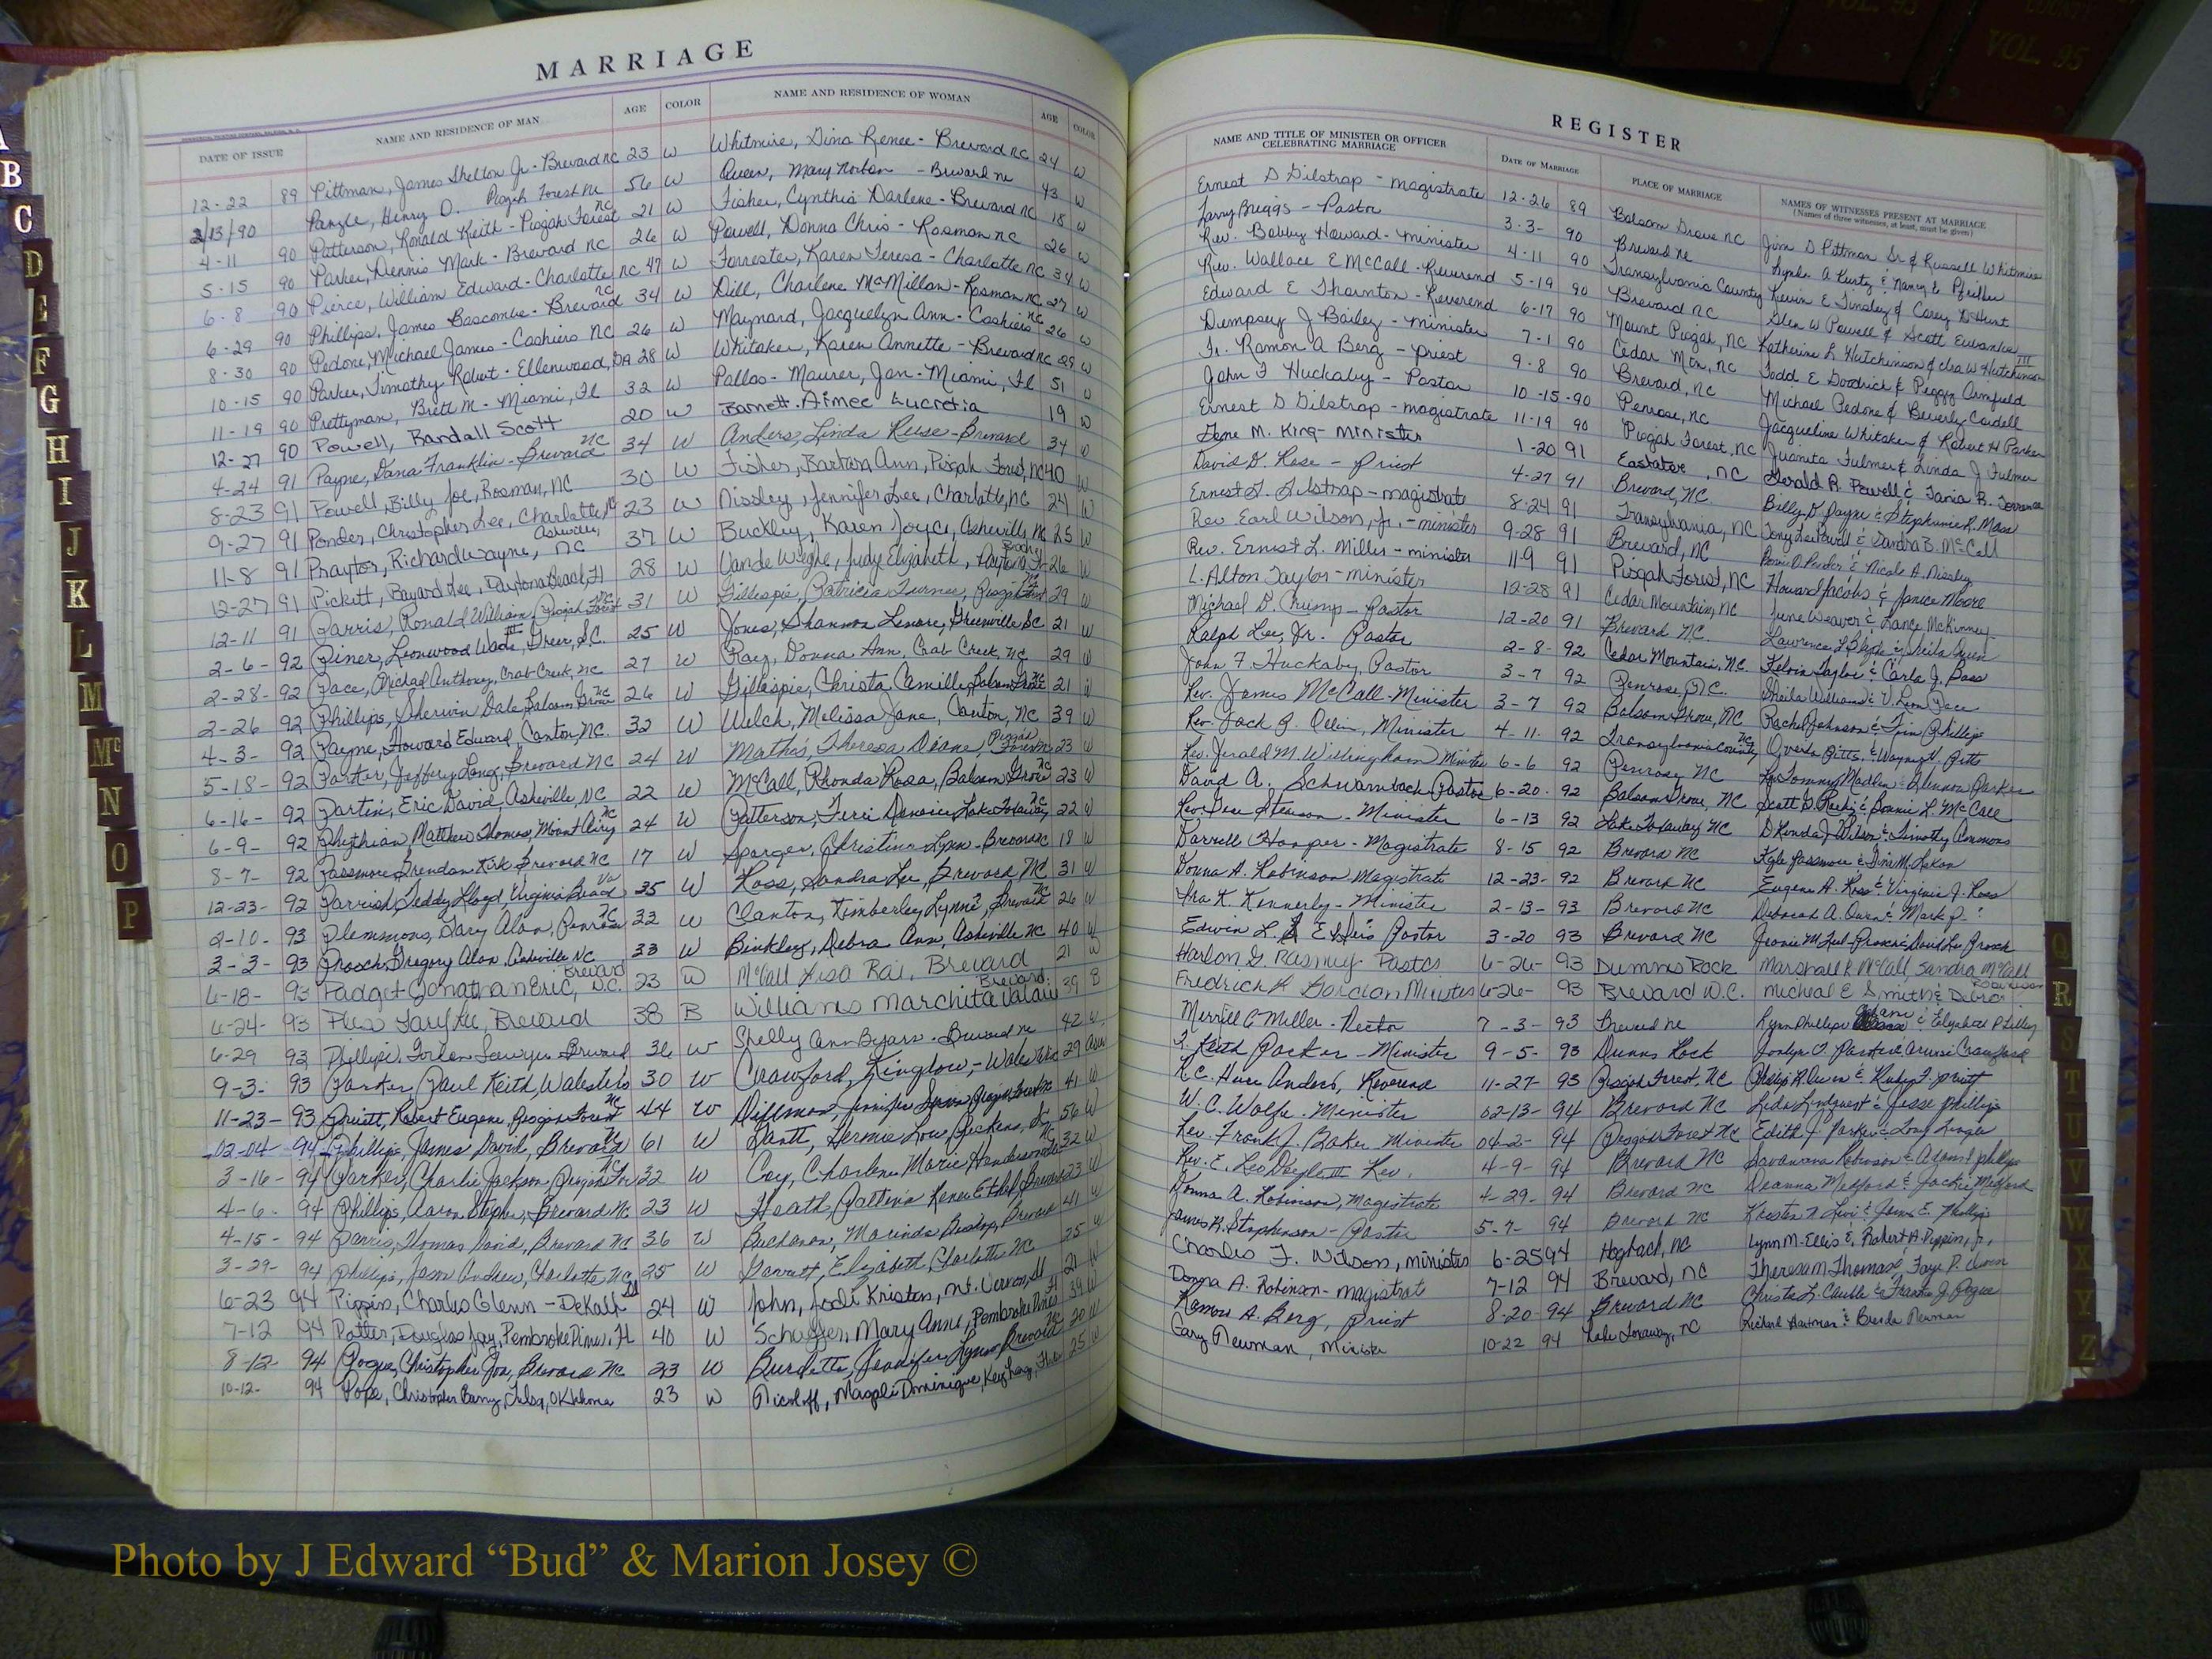 MARRIAGE
DATE OF ISSUE NAME AND RESIDENCE OF MAN AGE COLOR NAME AND RESIDENCE OF WOMAN AGE COLOR
12-22 89 Pittman, James Shelton Jr - Brevard NC 23 W Whitmire, Dina Renee - Brevard NC 24 W
2/13/90 Pangle, Henry O. Pisgah Forest NC 56 W Queen, Mary - Brevard NC 43 W
4-11 90 Patterson, Ronald Keith - Pisgah Forest NC 21 W Fisher, Cynthia Darlene - Brevard NC 18 W
5-15 90 Parker, Dennis Mark - Brevard NC 26 W Powell, Donna Chris - Rosman NC 26 W
6-8 90 Pierce, William Edward - Charlotte NC 47 W Forrester, Karen Teresa - Charlotte NC 34 W
6-29 90 Phillips, James Bascombe - Brevard NC 34 W Dill, Charlene McMillan - Rosman NC 27 W
8-30 90 Pedone, Michael James - Cashiers NC 26 W Maynard, Jacquelyn Ann - Cashiers NC 26 W
10-15 90 Parker, Timothy Robert - Ellenwood, GA 28 W Whitaker, Karen Annette - Brevard NC 29 W
11-19 90 Prettyman, Brett M - Miami, Fl 32 W Pallas - Maurer, Jan - Miami, Fl 51 W
12-27 90 Powell, Randall Scott 20 W Barnett, Aimee Lucretia 19 W
4-24 91 Payne, Dana Franklin - Brevard NC 34 W Anders, Linda - Brevard 34 W
8-23 91 Powell, Billy Joe, Rosman, NC 30 W Fisher, Barbara Ann, Pisgah Forest, NC 40 W
9-27 91 Ponder, Christopher Lee, Charlotte NC 23 W Nissley, Jennifer Lee, Charlotte, NC 24 W
11-8 91 Praytor, Richard Wayne, Asheville, NC 37 W Buckley, Karen Joyce, Asheville, NC 25 W
12-27 91 Pickett, Bayard Lee, Daytona Beach, Fl 28 W Judy Elizabeth, Daytona Beach 26 W
12-11 91 Parris, Ronald William, Pisgah Forest NC 31 W Gillespie, Patricia Turner, Pisgah Forest NC 29 W
2-6-92 Piner, Leonwood Wade III, Greer, S.C. 25 W Jones, Shannon Lenore, Greenville SC 21 W
2-28-92 Pace, Michael Anthony, Crab Creek, NC 27 W Ray, Donna Ann, Crab Creek, NC 29 W
2-26 92 Phillips, Sherwin Dale, Balsam Grove NC 26 W Gillespie, Christa Camille, Balsam Grove NC 21 W
4-3- 92 Payne, Howard Edward, Canton, NC. 32 W Welch, Melissa Jane, Canton, NC 39 W
5-18-92 Parker, Jeffery Long, Brevard NC 24 W Mathis, Theresa Diane, Pisgah Forest 23 W
6-16- 92 Partin, Eric David, Asheville, NC 22 W McCall, Rhonda Rosa, Balsam Grove NC 23 W
6-9- 92 Phythian Matthew Thomas, Mount Airy NC 24 W Patterson, Terri Denise, Lake Toxaway NC 22 W
8-7- 92 Passmore, Brendan Kirk, Brevard NC 17 W Christina Lynn - Brevard NC 18 W
12-23- 92 Parrish, Teddy Lloyd, Virginia Beach Va 35 W Ross, Sandra Lee, Brevard NC 31 W
2-10- 93 Plemmons, Gary Alan, Penrose NC 32 W Clanton, Kimberley Lynne, Brevard NC 26 W
3-3- 93 Prosch, Gregory Alan, Asheville NC 33 W Binkley, Debra Ann, Asheville NC 40 W
6-18- 93 Padget Jonathan Eric, Brevard N.C. 23 W McCall Lisa Rai, Brevard 21 W
6-24- 93 Brevard 38 B Williams Marchita Brevard 39 B
6-29 93 Phillips, Brevard 36 W Shelly Ann - Brevard NC 42 W
9-3- 93 Parker, Paul Keith, Wales 30 W Crawford, - Wales 29
11-23-93 Pruett, Robert Eugene, Pisgah Forest NC 44 W Jennifer Pisgah Forest NC 41 W
02-04- 94 Phillips, James David, Brevard NC 61 W Gantt, Lou, Pickens, SC 56 W
3-16- 94 Parker, Charlie Jackson, Pisgah For NC 32 W Charlene Marie Henderson 32 W
4-6- 94 Phillips, Aaron Stephen, Brevard NC 23 W Heath, Renee Ethel, Brevard 23 W
4-15- 94 Parris, Thomas David, Brevard NC 36 W Buchanan, Marinda Brevard 41 W
3-29- 94 Phillips, Jason Andrew, Charlotte, NC 25 W Garrett, Elizabeth, Charlotte NC 25 W
6-23 94 Pippin, Charles Glenn - DeKalb Ill 24 W John, Jodi Kristen, Mt. Vernon, Ill 21 W
7-12 94 Potter, Douglas Jay, Pembroke Pines, FL 40 W Schaffer, Mary Anne, Pembroke Pines Fl 39 W
8-12- 94 Pogue, Christopher Jon, Brevard NC 23 W Burdette, Jennifer Lynn, Brevard NC 20 W
10-12- 94 Pope, Christopher Barry, Tulsa, Oklahoma 23 W Nicoloff, Magali Dominique, Key Largo, Florida 25 W
REGISTER
NAME AND TITLE OF MINISTER OR OFFICER CELEBRATING MARRIAGE DATE OF MARRIAGE PLACE OF MARRIAGE NAMES OF WITNESSES PRESENT AT MARRIAGE
(Names of three witnesses, at least, must be given)
Ernest D Gilstrap - magistrate 12-26 89 Balsam Grove NC Jim D Pittman Sr & Russell Whitmire
Larry Briggs - Pastor 3-3- 90 Brevard NC A Kurtz & Nancy E Pfeiffer
Rev. Bobby Howard - minister 4-11 90 Transylvania County Kevin E Tinsley & Casey D Hunt
Rev. Wallace E McCall - Reverend 5-19 90 Brevard NC Glen W Powell & Scott Eubanks III
Edward E Thornton - Reverend 6-17 90 Mount Pisgah, NC Katherine L Hutchinson & Ira W Hutchinson
Dempsey J Bailey - minister 7-1 90 Cedar Mtn, NC Todd E Goodrich & Peggy Armfield
Fr. Ramon A Berg - priest 9-8 90 Brevard, NC Michael Pedone & Beverly Cordell
John F Huckaby - Pastor 10-15-90 Penrose, NC Jacqueline Whitaker & Robert H Parker
Ernest D Gilstrap - magistrate 11-19 90 Pisgah Forest, NC Juanita Fulmer & Linda J Fulmer
Gene M. King - Minister 1-20 91 Eastatoe, NC Gerald R. Powell & Tania R.
David D. Rose - Priest 4-27 91 Brevard, NC. Billy D Payne & Stephanie R. Moss
Ernest D. Gilstrap - magistrate 8-24 91 Transylvania, NC Tony Lee Powell & Sandra B. McCall
Rev Earl Wilson, Jr. - minister 9-28 91 Brevard, NC Ponder & Nicole A. Nissley
Rev. Ernest L. Miller - minister 11-9 91 Pisgah Forest, NC Howard Jacobs & Janice Moore
L. Alton Taylor - minister 12-28 91 Cedar Mountain, NC June Weaver & Lance McKinney
Michael D. Crump - Pastor 12-20 91 Brevard NC. Lawrence & Sheila Owen
Ralph Lee, Jr. Pastor 2-8-92 Cedar Mountain, NC. Kelvin Taylor & Carla J. Bass
John F. Huckaby, Pastor 3-7 92 Penrose, N.C. Sheila Williams & V. Leon Pace
Rev. James McCall - Minister 3-7 92 Balsam Grove, NC Rachel Johnson & Phillips
Rev. Jack G. Minister 4-11. 92 Transylvania County NC Pitts & Wayne H. Pitts
Rev. Jerald M. Willingham Minister 6-6 92 Penrose, NC Tommy & Glennon Parker
David A. Schwambach Pastor 6-20. 92 Balsam Grove, NC Scott & Bonnie L. McCall
Rev. Stenson - Minister 6-13 92 Lake Toxaway NC & Timothy Ammons
Darrell Hooper - Magistrate 8-15 92 Brevard NC Kyle Passmore &
Donna A. Robinson Magistrate 12-23- 92 Brevard NC Eugene A. Ross & Virginia J. Ross
Ira K. Kennerly - Minister 2-13- 93 Brevard NC Deborah A. Owen & Mark P.
Edwin L. Pastor 3-20 93 Brevard NC Jeanie M & David Lee Prosch
Harlon G. Pastor 6-26- 93 Dunns Rock Marshall R McCall, Sandra McCall
Fredrick R Gordon Minister 6-26- 93 Brevard N.C. Micheal E Smith & Debra
Merrill C Miller - Rector 7-3- 93 Brevard NC Lynn Phillips & Elizabeth P
T. Keith Parker - Minister 9-5- 93 Dunns Rock Parker & Crawford
R.C. Anders, Reverend 11-27- 93 Pisgah Forest, NC Philip R. Owen & Pruitt
W. C. Wolfe - Minister 02-13- 94 Brevard NC & Jesse Phillips
Rev. Frank J. Baker Minister 04-2- 94 Pisgah Forest NC Edith J. Parker &
Rev. E. Leo Rev. 4-9- 94 Brevard NC Savannah Robinson & Adam Phillips
Donna A. Robinson, Magistrate 4-29- 94 Brevard NC Deanna Medford & Jackie Medford
James R. Stephenson - Pastor 5-7- 94 Brevard NC Kristen & James E. Phillips
Charles F. Wilson, minister 6-25 94 Hogback, NC Lynn M. Ellis & Robert A. Pippin, Jr.
Donna A. Robinson - magistrate 7-12 94 Brevard, NC Theresa M Thomas & Faye P. Owen
Ramon A. Berg, Priest 8-20-94 Brevard NC Christa L. & J. Pogue
Gary Newman, Minister 10-22 94 Lake Toxaway, NC Richard & Brenda Newman
A
B
C
D
E
F
G
H
I
J
K
L
M
Mc
N
O
P
Q
R
S
T
U
V
W
X
Y
Z
VOL. 95
Photo by J Edward “Bud” & Marion Josey ©